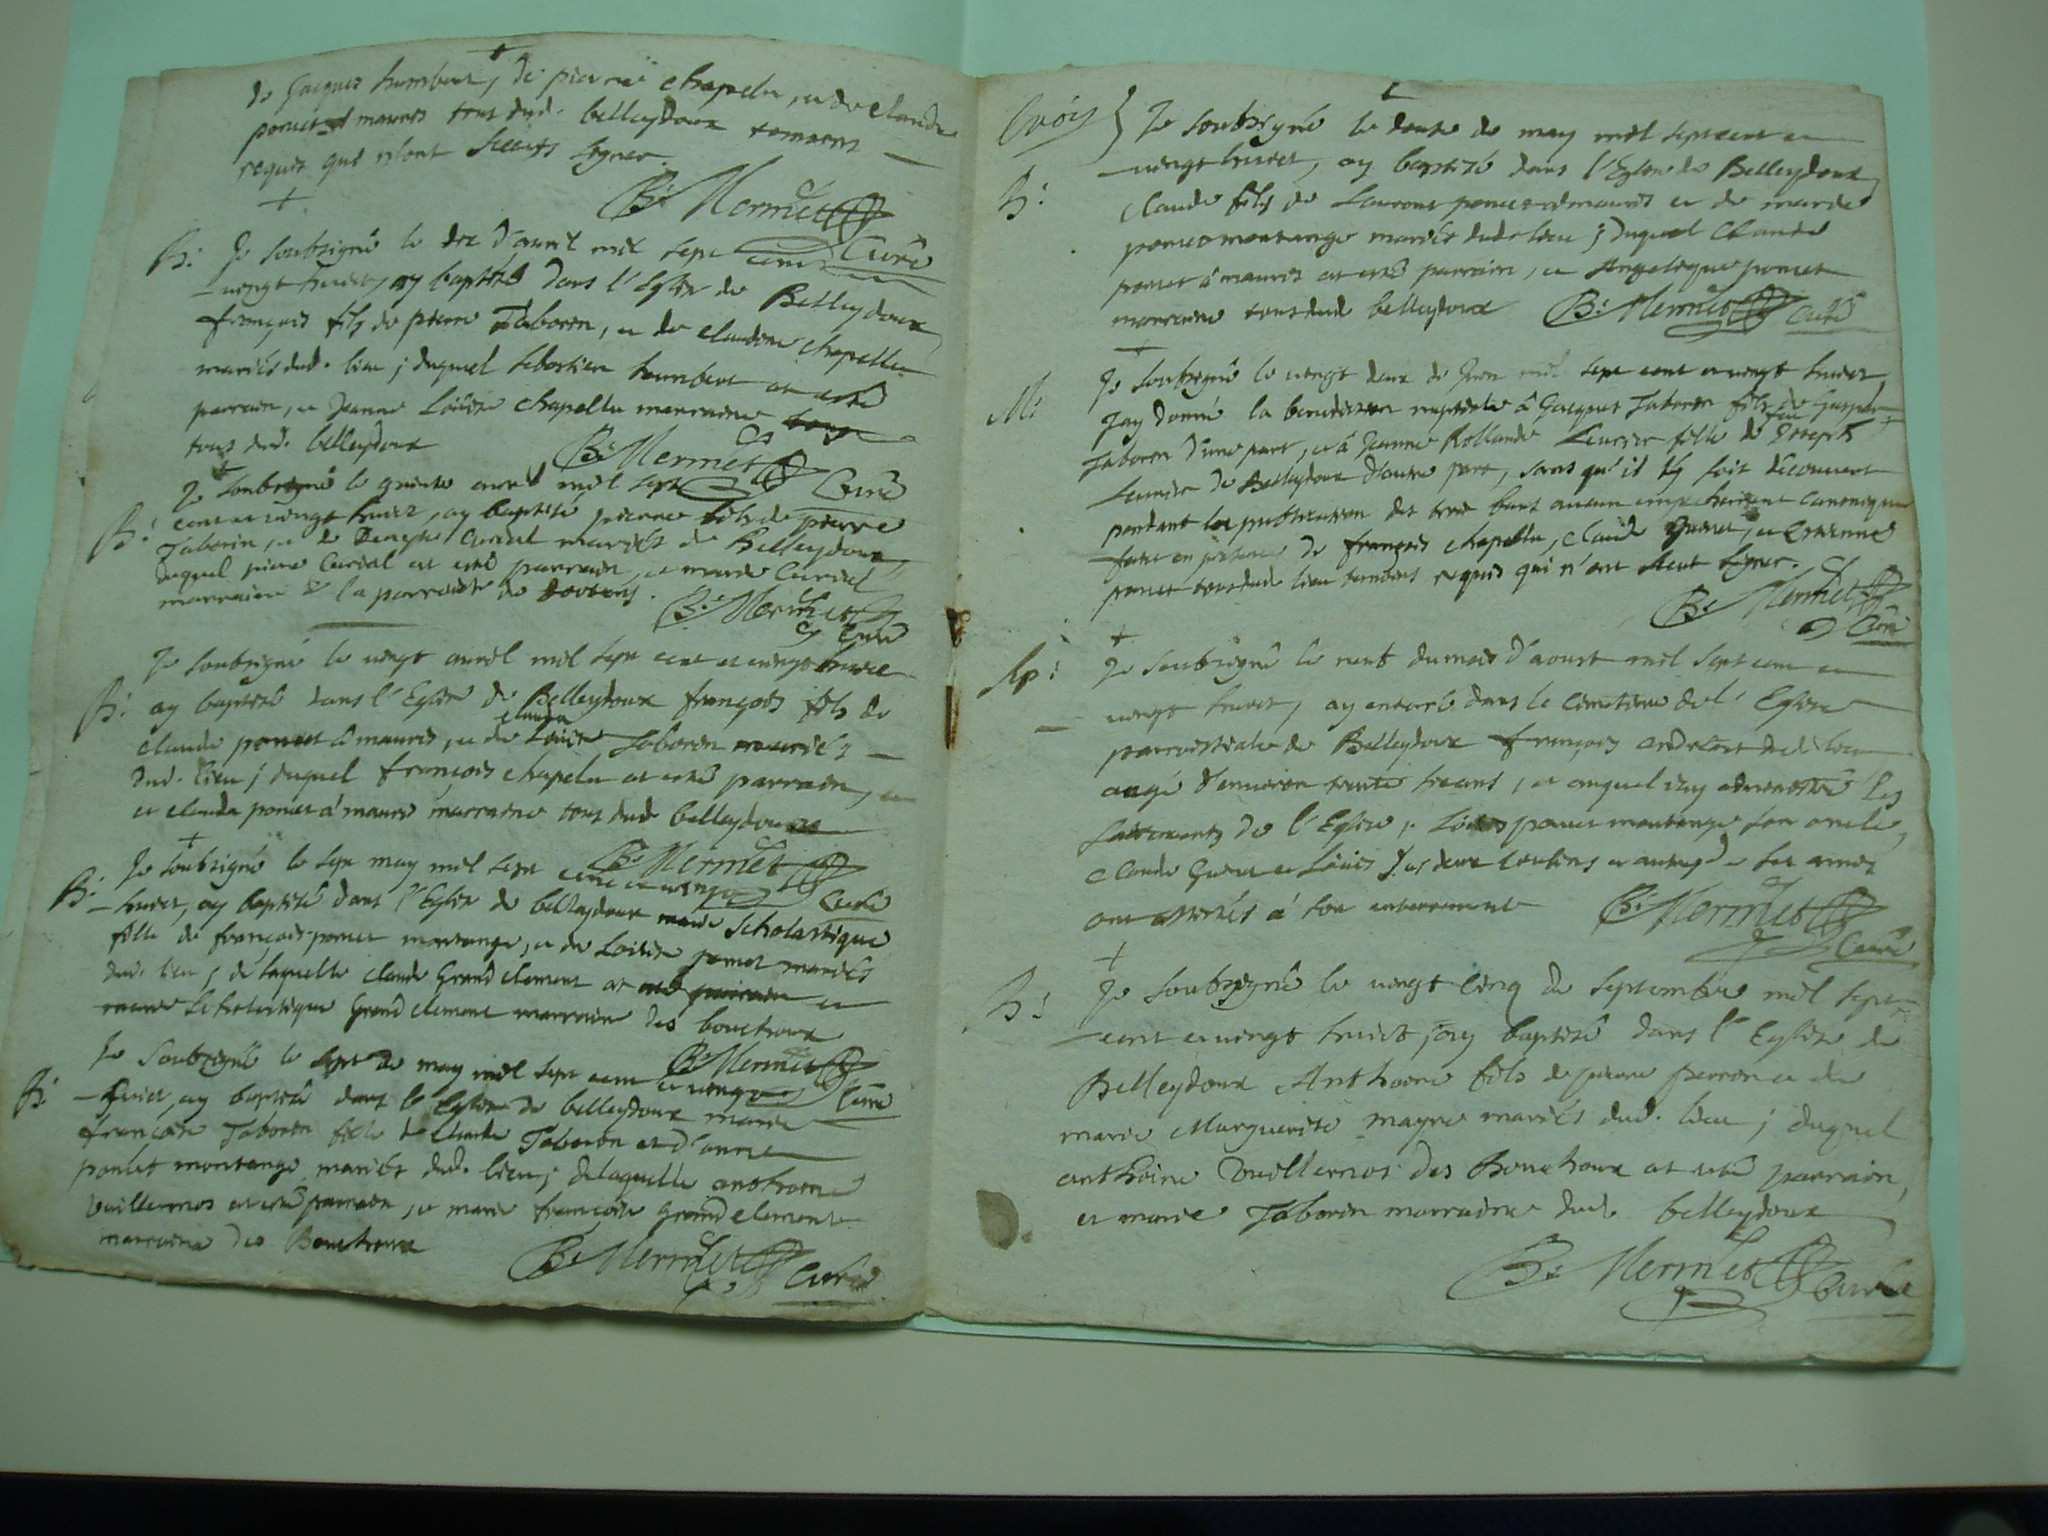 de Jacques humbert, de pierre chapelu, et de claude
poncet à mauris tous dud. belleydoux temoins
requis qui n'ont sceuts signer.
B: Mermet Curé
B: Je soubsigné le dix d'avril mil sept cent et
vingt huict, ay baptisé dans l'Eglise de Belleydoux
françois fils de pierre Taboren, et de claudine chapellu
mariés dud. lieu; duquel sebastien humbert at esté
parrain, et Jeanne Loüise chapellu marraine
tous dud. belleydoux
B: Mermet Curé
Je soubsigné le quinze avril mil sept
B: cent et vingt huict, ay baptisé pierre fils de pierre
Taborin, et de Curial mariés de Belleydoux
duquel pierre Curial at esté parrain, et marie Curial
marraine de la parroisse de
B: Mermet Curé
Je soubsigné le vingt avril mil sept cent et vingt huict
B: ay baptisé dans l'Eglise de Belleydoux françois fils de
claude poncet à mauris, et de clauda Taboren mariés
dud. lieu; duquel françois chapelu at esté parrain,
et clauda poncet à mauris marraine tous dud. belleydoux
B: Mermet Curé
Je soubsigné le sept may mil sept cent et vingt
B: huict, ay baptisé dans l'Eglise de belleydoux marie Scholastique
fille de françois poncet montange, et de Loüise poncet mariés
dud. lieu; de laquelle claude Grand clement at esté parrain et
marie Scholastique Grand clement marraine des bouchoux
B: Mermet Curé
Je soubsigné le sept de may mil sept cent et vingt
B: huict, ay baptisé dans l'Eglise de belleydoux marie
françoise Taboren fille de Claude Taboren et d'anne
poncet montange mariés dud. lieu; de laquelle anthoine
Vuillermos at esté parrain, et marie françoise Grand clement
marraine des Bouchoux
B: Mermet Curé
Je soubsigné le douze de may mil sept cent et
B: vingt huict, ay baptisé dans l'Eglise de Belleydoux
claude fils de Laurent poncet à mauris et de marie
poncet montange mariés dud. lieu; duquel Claude
poncet à mauris at esté parrain, et Angelique poncet
marraine tous dud. belleydoux B: Mermet Curé
M: Je soubsigné le vingt deux de Juin mil sept cent et vingt huict,
Jay donné la benediction nuptiale à Jacques Taboren fils de Gaspar
Taboren d'une part, et à Jeanne Rollande fille de feu Joseph
de Belleydoux d'autre part, sans qu'il s'y soit découvert
pendant les publications des trois bans aucun empechement canonique
faict en presence de françois chapellu, claude et
poncet tous dud. lieu temoins requis qui n'ont sceut signer.
B: Mermet Curé
Sp: Je soubsigné le neuf du mois d'aoust mil sept cent et
vingt huict, ay enterré dans le Cimetiere de l'Eglise
parroissiale de Belleydoux françois dud. lieu
aagé d'environ trente ans, et auquel ay administré les
sacrements de l'Eglise; Loüis poncet montange son oncle,
claude et Loüis ses deux cousins et autres de ses amis
ont assistés à son enterrement B: Mermet
Curé
B: Je soubsigné le vingt cinq de septembre mil sept
cent et vingt huict, ay baptisé dans l'Eglise de
Belleydoux Anthoine fils de pierre perron et de
marie Marguerite mayre mariés dud. lieu; duquel
anthoine Vuillermos des Bouchoux at esté parrain,
et marie Taboren marraine dud. belleydoux
B: Mermet Curé